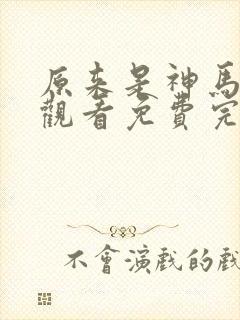 原来是神馬
觀看免費完
不會演戲的戲